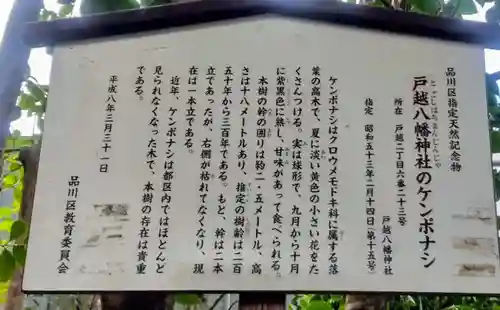 品川区指定天然記念物
戸越八幡神社のケンポナシ
とごしはちまんじんじゃ
所在 戸越二丁目六番二十三号
戸越八幡神社
指定 昭和五十三年二月十四日(第十五号)
ケンポナシはクロウメモドキ科に属する落
葉の高木で、夏に淡い黄色の小さい花をた
くさんつける。実は球形で、九月から十月
に紫黒色に熟し、甘味があって食べられる。
本樹の幹の囲りは約二・五メートル、高
さは十八メートルあり、指定の樹齢は二百
五十年から三百年である。もと、幹は二本
立であったが、右側が枯れてなくなり、現
在は一本立である。
近年、ケンポナシは都区内ではほとんど
見られなくなった木で、本樹の存在は貴重
である。
平成八年三月三十一日
品川区教育委員会